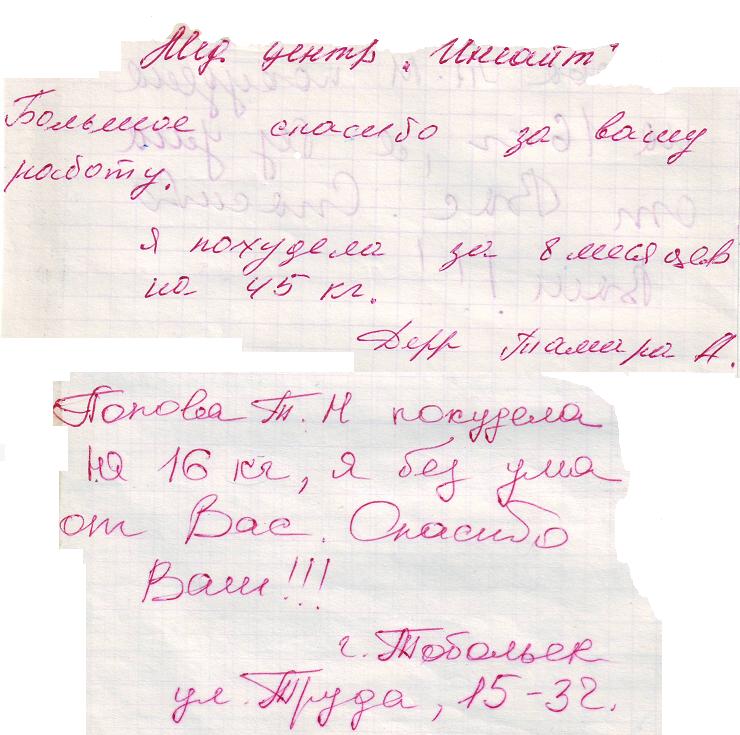 Мед. центр „Инсайт"
Большое спасибо за вашу
работу.
я похудела за 8 месяцев
на 45 кг.
Дерр Тамара А.
Попова Т. Н похудела
на 16 кг, я без ума
от Вас. Спасибо
Вам!!!
г. Тобольск
ул. Труда, 15-32.